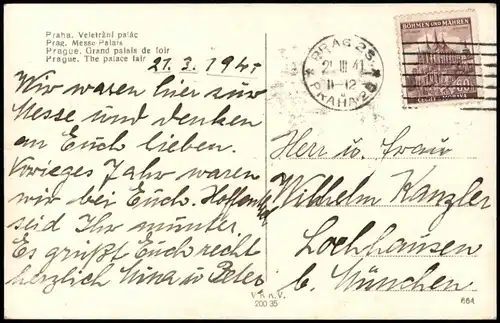 Praha. Veletržní palác
Prag. Messe Palais
Prague. Grand palais de foir
Prague. The palace fair
21.3.1941
Wir waren hier zur
Messe und denken
an Euch lieben.
Voriges Jahr waren
wir bei Euch. Hoffentl.
seid Ihr munter.
Es grüßt Euch recht
herzlich Mina u Peter
PRAG 25
21 III 41
11-12
PRAHA 25
BÖHMEN UND MÄHREN
60
Herr u. Frau
Wilhelm Kanzler
Lochhausen
b. München
V.K.n.V.
200 35
664